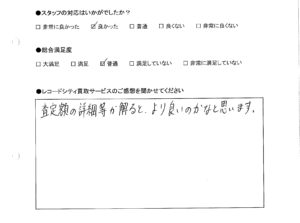 ●スタッフの対応はいかがでしたか？
□ 非常に良かった ☑ 良かった □ 普通 □ 良くない □ 非常に良くない
●総合満足度
□ 大満足 □ 満足 ☑ 普通 □ 満足していない □ 非常に満足していない
●レコードシティ買取サービスのご感想を聞かせてください
査定額の詳細等が解ると、より良いのかなと思います。